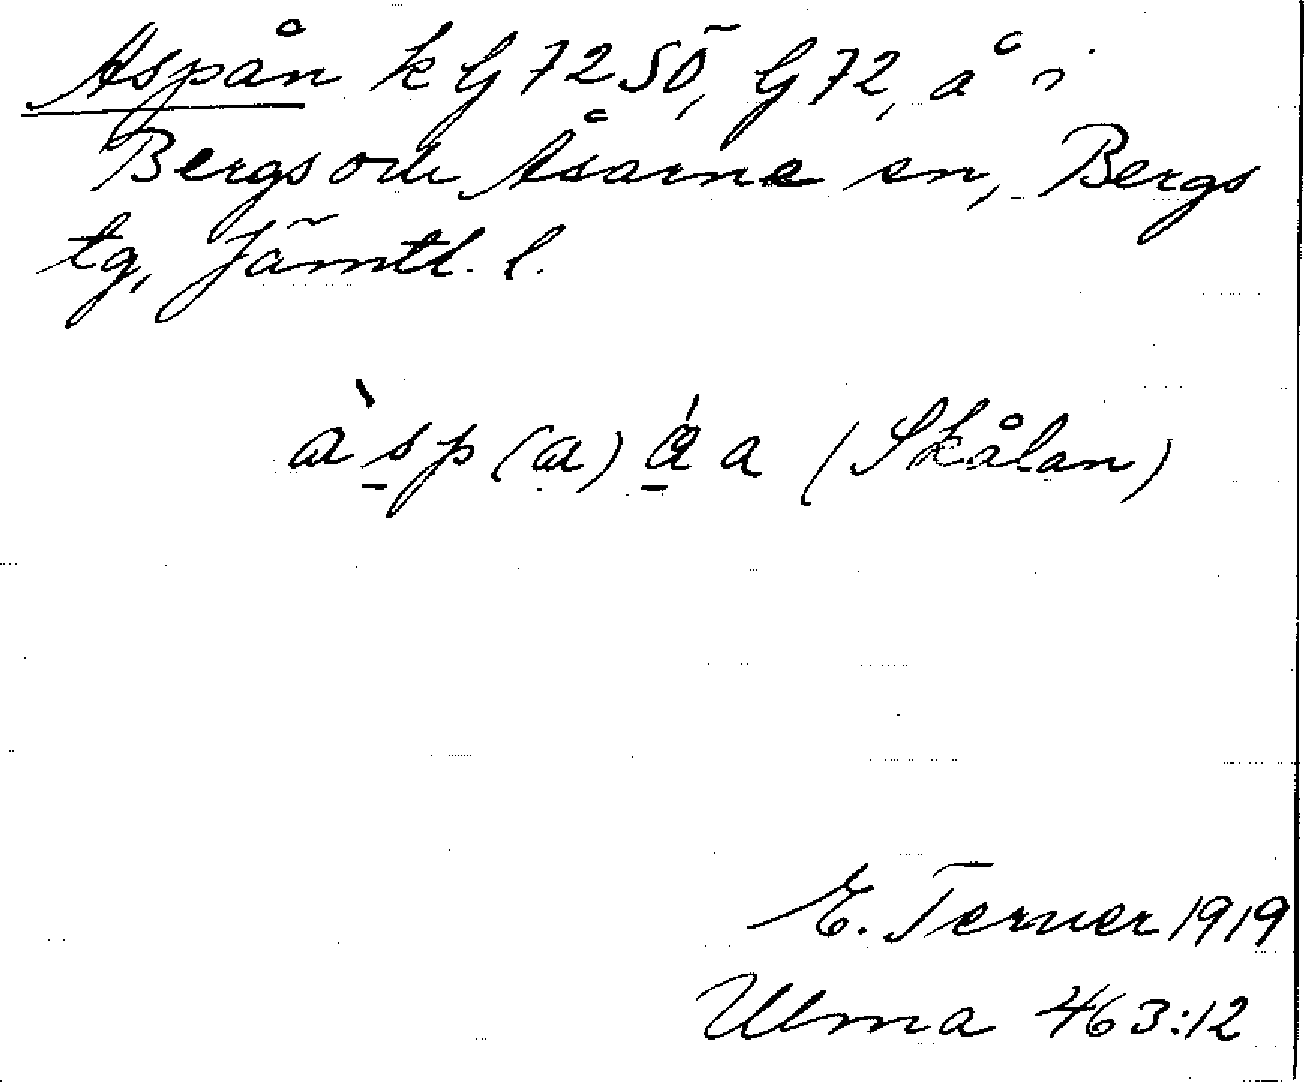 Aspån k G 72 SÖ, G 72, å i
Bergs och Åsarne sn, Bergs
tg, Jämtl. l.
a̍sp(a) åa (Skålan)
E. Terner 1919
Ulma 463:12